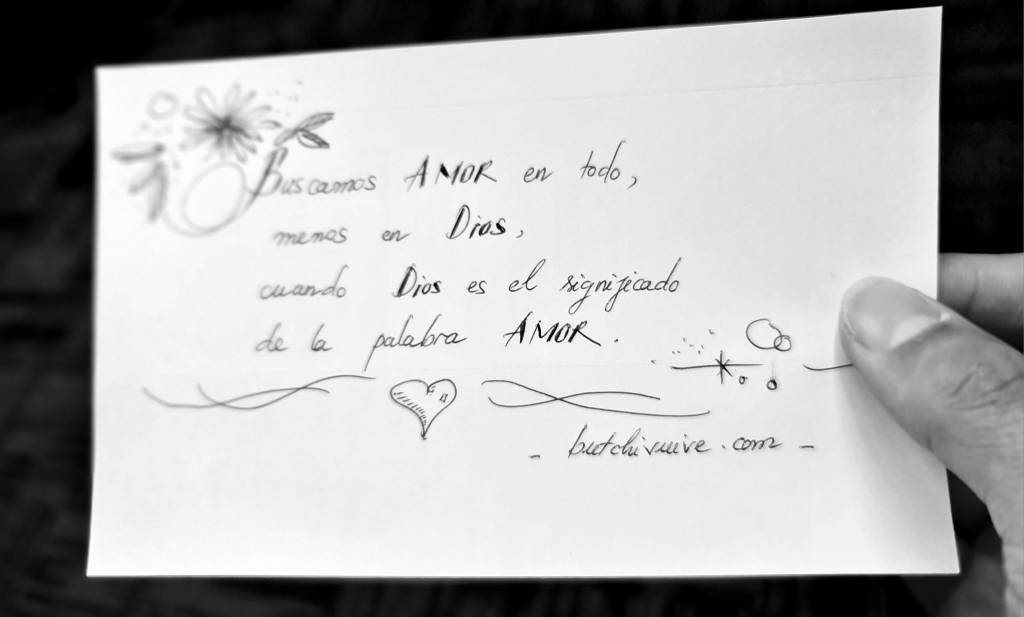 Buscamos AMOR en todo,
menos en Dios,
cuando Dios es el significado
de la palabra AMOR.
- butchivuive.com -